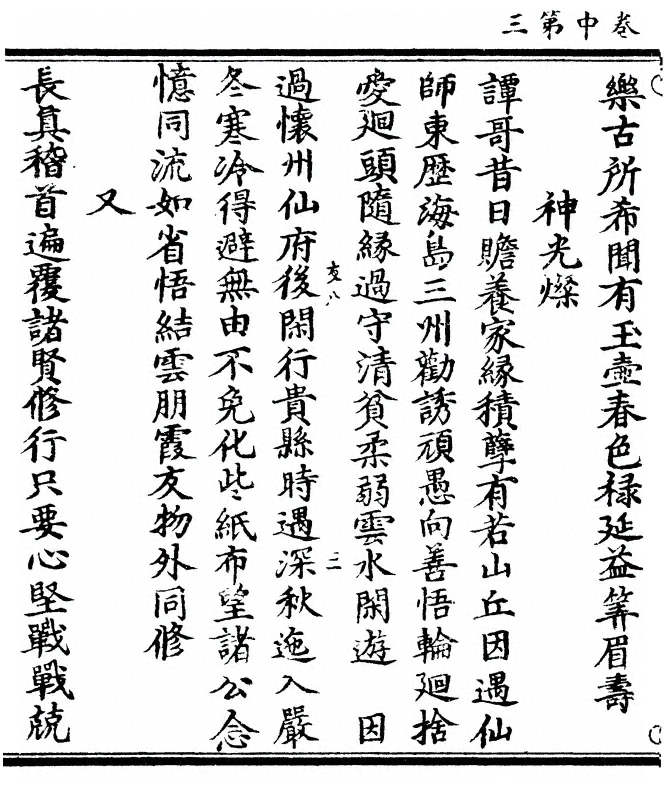 卷中第三
樂古所希聞有玉壺春色祿延益筭眉壽
神光燦
譚哥昔日贍養家緣積孽有若山丘因遇仙
師東歷海島三州勸誘頑愚向善悟輪迴捨
愛迴頭隨緣過守清貧柔弱雲水閑遊 因
亥八
三
過懷州仙府後閑行貴縣時遇深秋迤入嚴
冬寒冷得避無由不免化些紙布望諸公念
憶同流如省悟結雲朋霞友物外同修
又
長真稽首遍覆諸賢修行只要心堅戰戰兢